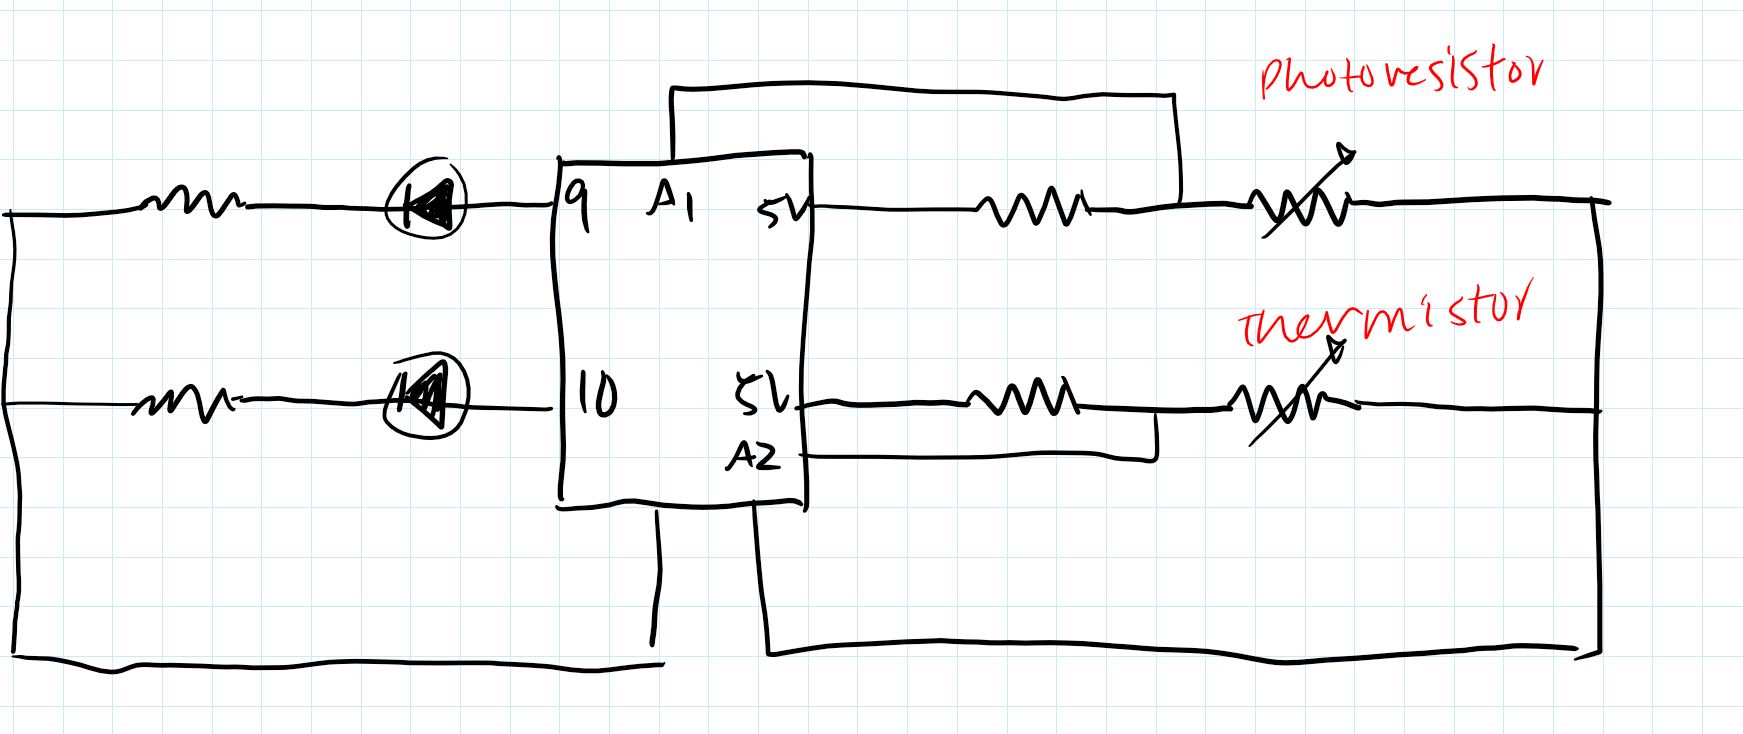 photoresistor
9
A1
5V
Thermistor
10
5V
A2